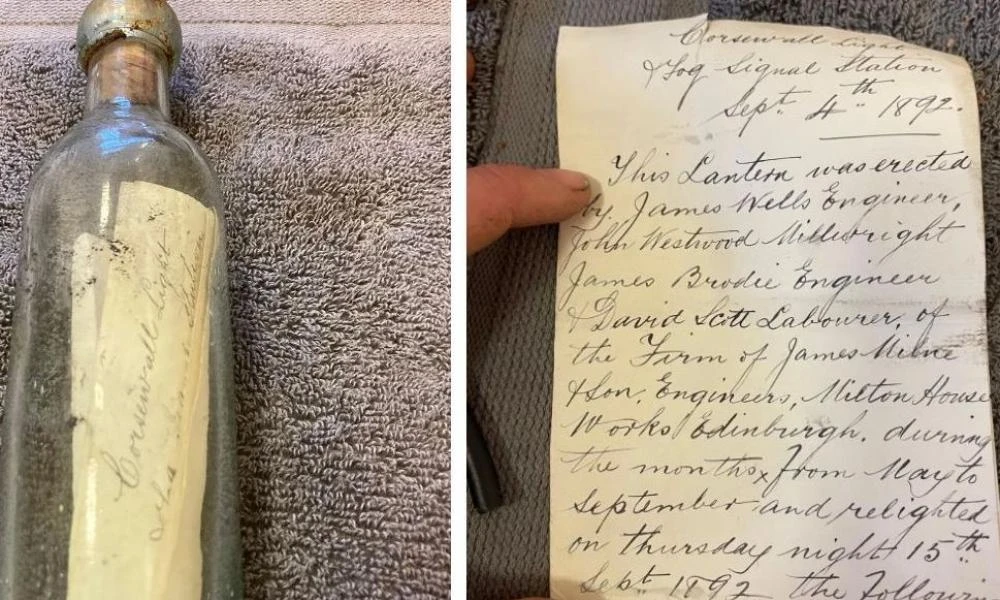 Corsewall Light
& Fog Signal Station
Corsewall Light
& Fog Signal Station
Sept. 4th 1892.
This Lantern was erected
by James Wells Engineer,
John Westwood Millwright
James Brodie Engineer
& David Scott Labourer, of
the Firm of James Milne
& Son, Engineers, Milton House
Works Edinburgh. during
the months, from May to
September and relighted
on thursday night 15th
Sept. 1892 the